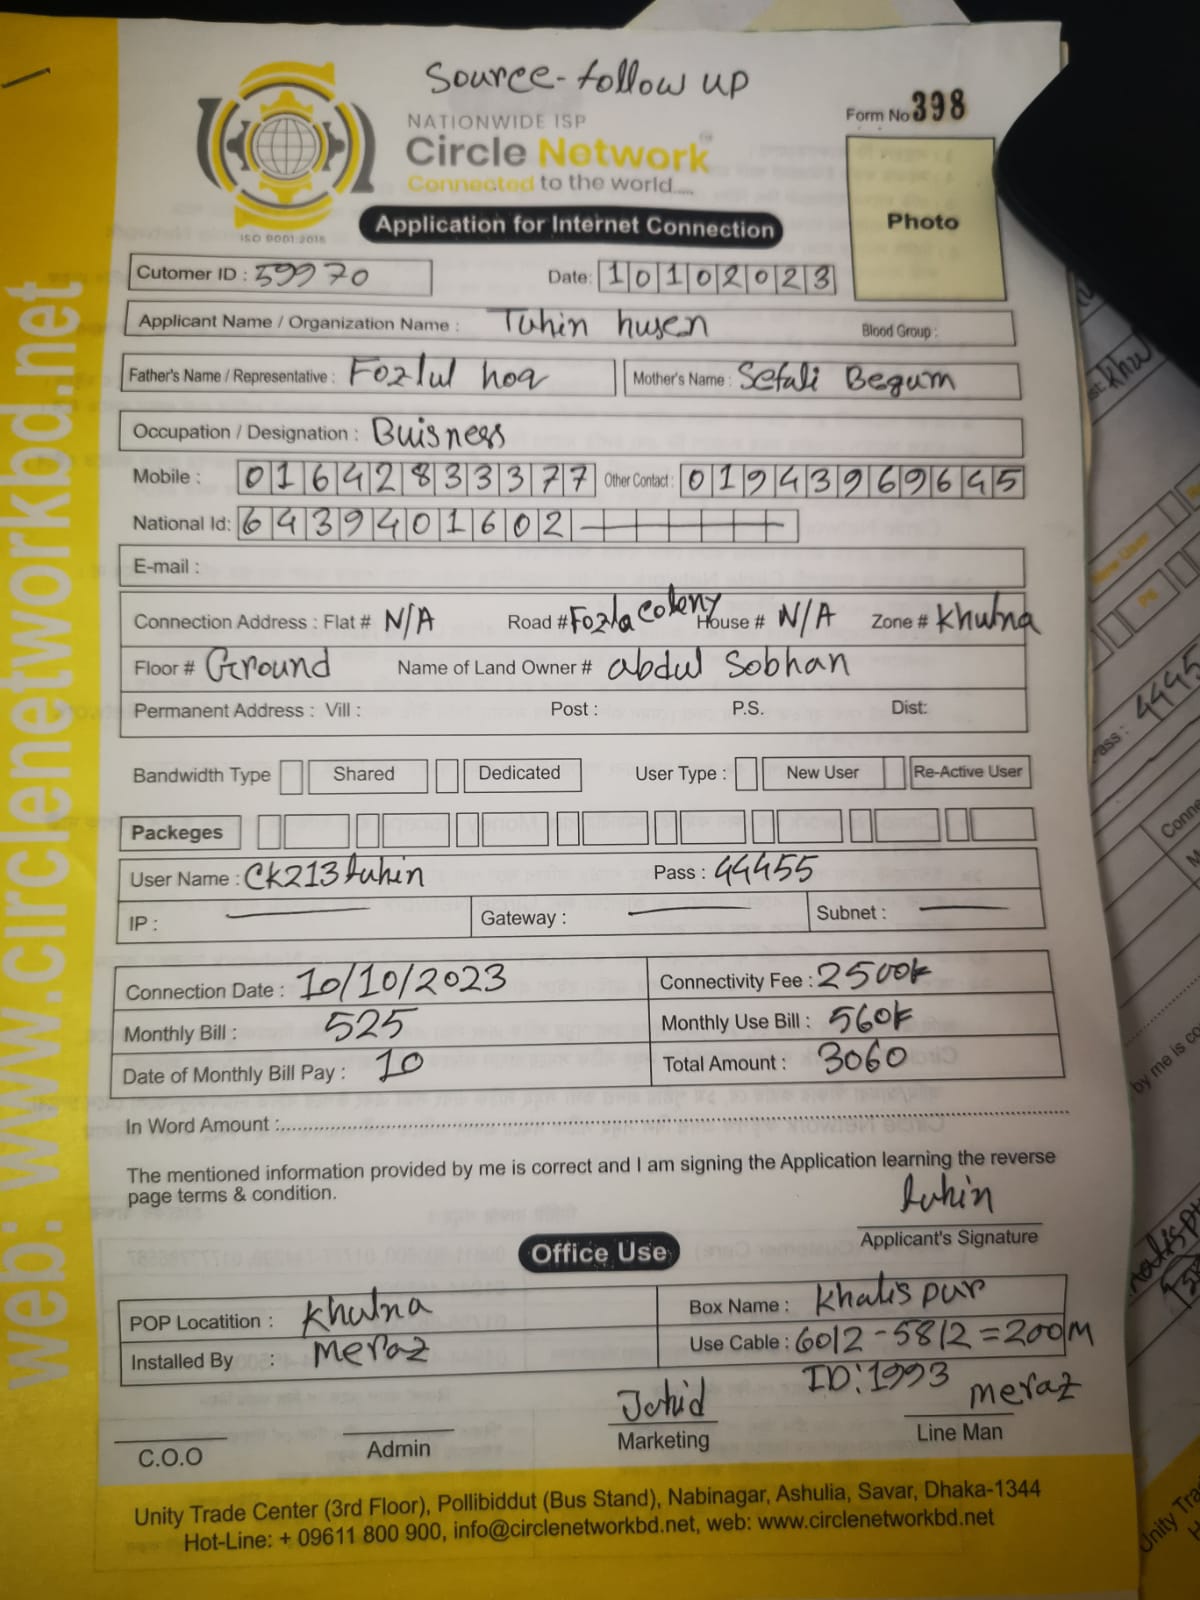 Source - follow up
NATIONWIDE ISP
Circle Network
Connected to the world.....
ISO 9001:2015
Form No 398
Photo
Application for Internet Connection
Cutomer ID : 59970 Date: 10102023
Applicant Name / Organization Name : Tuhin husen Blood Group :
Father's Name / Representative : Fozlul hoq Mother's Name : Sefali Begum
Occupation / Designation : Buisness
Mobile : 01642833377 Other Contact : 01943969645
National Id: 6439401602
E-mail :
Connection Address : Flat # N/A Road # Fozla Coleny House # N/A Zone # Khulna
Floor # Ground Name of Land Owner # abdul Sobhan
Permanent Address : Vill : Post : P.S. Dist:
Bandwidth Type Shared Dedicated User Type : New User Re-Active User
Packeges
User Name : CK213tuhin Pass : 44455
IP : Gateway : Subnet :
Connection Date : 10/10/2023 Connectivity Fee : 2500k
Monthly Bill : 525 Monthly Use Bill : 560k
Date of Monthly Bill Pay : 10 Total Amount : 3060
In Word Amount :
The mentioned information provided by me is correct and I am signing the Application learning the reverse
page terms & condition.
tuhin
Applicant's Signature
Office Use
POP Locatition : Khulna Box Name : Khalispur
Installed By : Meraz Use Cable : 6012 - 5812 = 200M
ID: 1993
Jahid meraz
C.O.O Admin Marketing Line Man
Unity Trade Center (3rd Floor), Pollibiddut (Bus Stand), Nabinagar, Ashulia, Savar, Dhaka-1344
Hot-Line: + 09611 800 900, info@circlenetworkbd.net, web: www.circlenetworkbd.net
web: www.circlenetworkbd.net